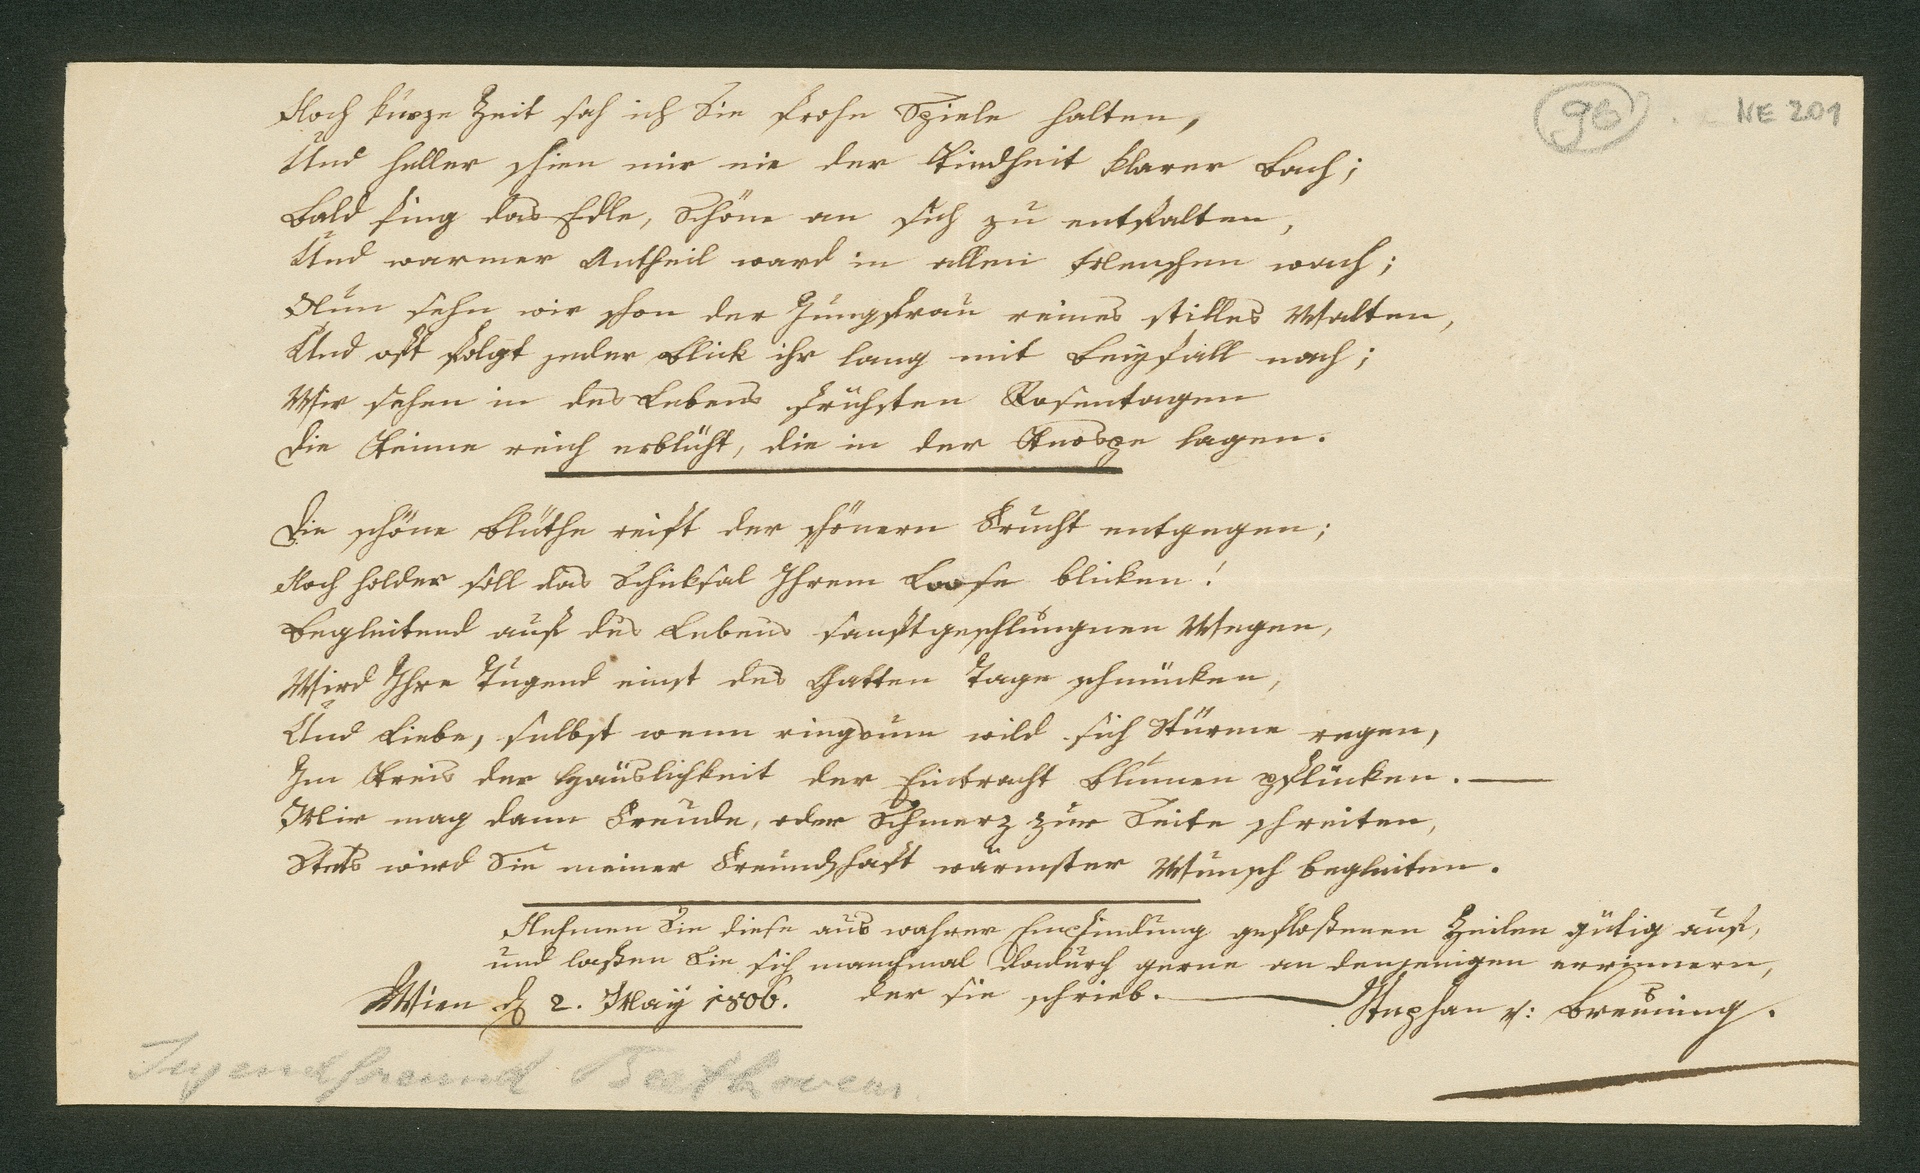 96
NE 201
Noch kurze Zeit sah ich Sie frohe Spiele halten,
Und heller schien mir nie der Kindheit klarer Bach;
Bald fing das Edle, Schöne an sich zu entfalten,
Und warmer Antheil ward in allen Menschen wach;
Nun sehn wir schon der Jungfrau reines stilles Walten,
Und oft folgt jeder Blick ihr lang mit Beyfall nach;
Wir sehen in des Lebens frühsten Rosentagen
Die Keime reich erblüht, die in der Knospe lagen.
Die schöne Blüthe reift der schönern Frucht entgegen;
Noch holder soll das Schicksal Ihrem Loose blicken!
Begleitend auf des Lebens sanftgeschlungnen Wegen,
Wird Ihre Tugend einst des Gatten Tage schmücken,
Und Liebe, selbst wenn ringsum wild sich Stürme regen,
Im Kreis der Häuslichkeit der Eintracht Blumen pflücken. —
Mir mag dann Freude, oder Schmerz zur Seite schreiten,
Stets wird Sie meiner Freundschaft wärmster Wunsch begleiten.
Nehmen Sie diese aus wahrer Empfindung gefloßenen Zeilen gütig auf,
und laßen Sie sich manchmal dadurch gerne an denjenigen errinnern,
der sie schrieb. —
Wien d 2. May 1806.
Stephan v: Breuning.
Jugendfreund Beethovens